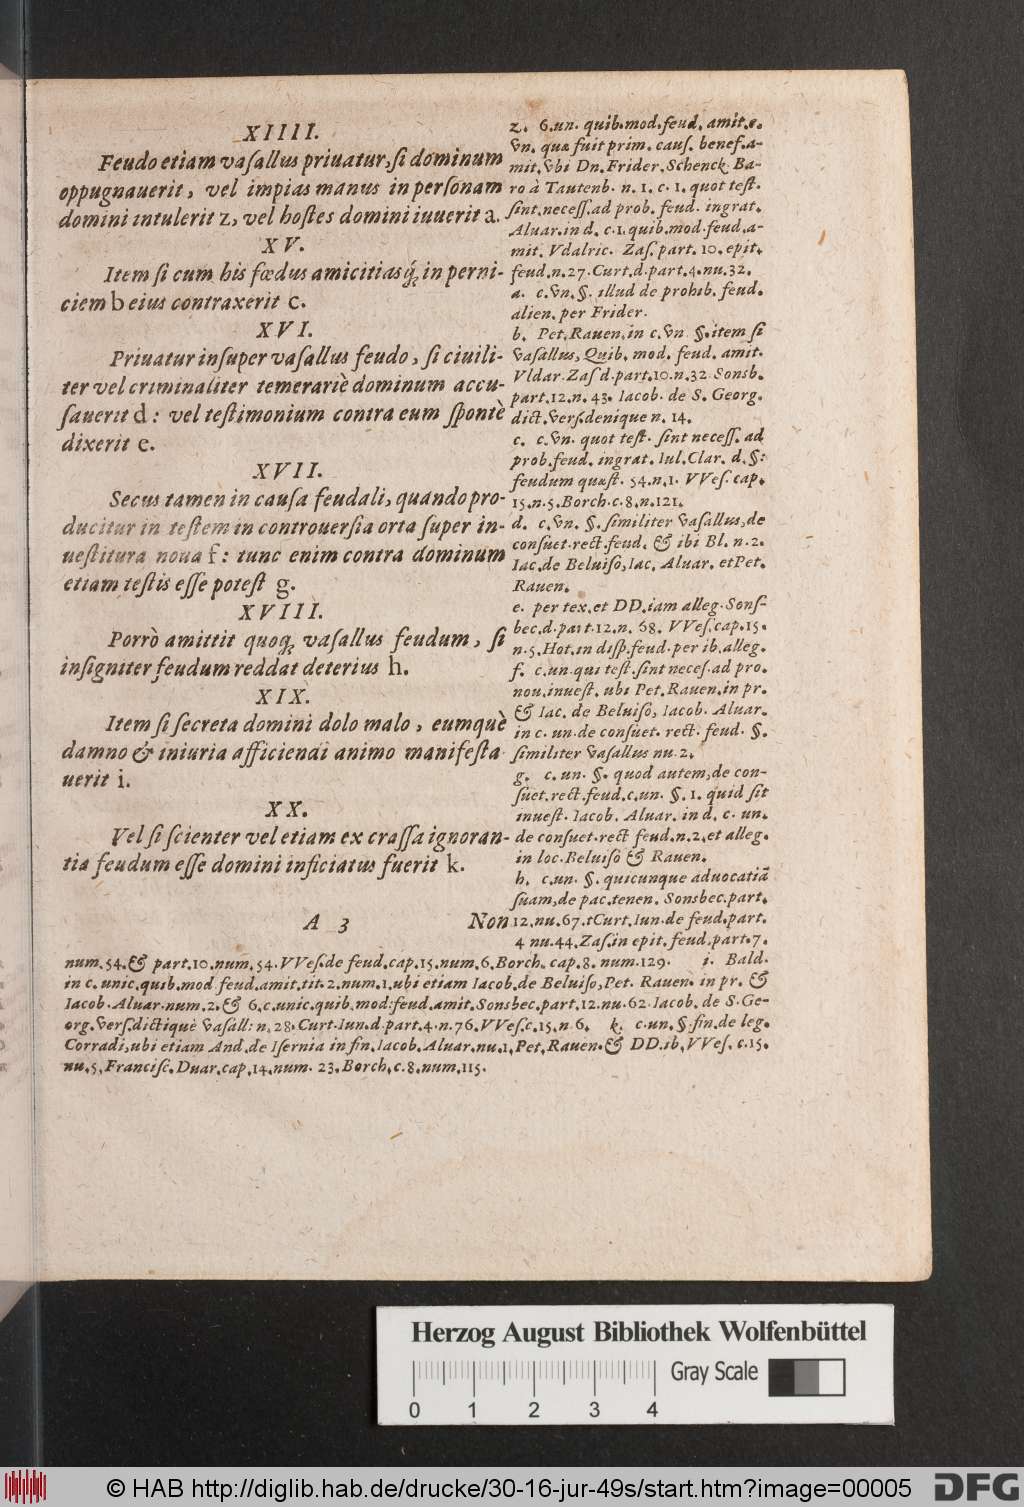 XIIII.
Feudo etiam vaſallus priuatur, ſi dominum
oppugnauerit, vel impias manus in perſonam
domini intulerit z, vel hoſtes domini iuuerit a.
XV.
Item ſi cum his fœdus amicitiasq́; in perni-
ciem b eius contraxerit c.
XVI.
Priuatur inſuper vaſallus feudo, ſi ciuili-
ter vel criminaliter temerariè dominum accu-
ſauerit d: vel teſtimonium contra eum ſpontè
dixerit e.
XVII.
Secus tamen in cauſa feudali, quando pro-
ducitur in teſtem in controuerſia orta ſuper in-
ueſtitura noua f: tunc enim contra dominum
etiam teſtis eſſe poteſt g.
XVIII.
Porrò amittit quoq; vaſallus feudum, ſi
inſigniter feudum reddat deterius h.
XIX.
Item ſi ſecreta domini dolo malo, eumquè
damno & iniuria afficiendi animo manifeſta
uerit i.
XX.
Vel ſi ſcienter vel etiam ex craſſa ignoran-
tia feudum eſſe domini inficiatus fuerit k.
A 3 Non
z. 6. un. quib. mod. feud. amit. c.
vn. quæ fuit prim. cauſ. benef. a-
mit. vbi Dn. Frider. Schenck Ba-
ro à Tautenb. n. 1. c. 1. quot teſt.
ſint. neceſſ. ad prob. feud. ingrat.
Aluar. in d. c. 1. quib. mod. feud. a-
mit. Vdalric. Zaſ. part. 10. epit.
feud. n. 27. Curt. d. part. 4. nu. 32.
a. c. vn. §. illud de prohib. feud.
alien. per Frider.
b. Pet. Rauen. in c. vn. §. item ſi
vaſallus, Quib. mod. feud. amit.
Vldar. Zaſ d. part. 10. n. 32 Sonsb.
part. 12. n. 43. Iacob. de S. Georg.
dict. verſ. denique n. 14.
c. c. vn. quot teſt. ſint neceſſ. ad
prob. feud. ingrat. Iul. Clar. d. §:
feudum quæſt. 54. n. 1. VVeſ. cap.
15. n. 5. Borch. c. 8. n. 121.
d. c. vn. §. ſimiliter vaſallus, de
conſuet. rect. feud. & ibi Bl. n. 2.
Iac. de Beluiſo, Iac. Aluar. et Pet.
Rauen.
e. per tex. et DD. iam alleg. Sonſ-
bec. d. part. 12. n. 68. VVeſ. cap. 15.
n. 5. Hot. in diſp. feud. per ib. alleg.
f. c. un. qui teſt. ſint neceſ. ad pro.
nou. inueſt. ubi Pet. Rauen. in pr.
& Iac. de Beluiſo, Iacob. Aluar.
in c. un. de conſuet. rect. feud. §.
ſimiliter vaſallus nu. 2.
g. c. un. §. quod autem, de con-
ſuet. rect. feud. c. un. §. 1. quid ſit
inueſt. Iacob. Aluar. in d. c. un.
de conſuet. rect feud. n. 2. et alleg.
in loc. Beluiſo & Rauen.
h. c. un. §. quicunque aduocatiã
ſuam, de pac. tenen. Sonsbec. part.
12. nu. 67. tCurt. Iun. de feud. part.
4 nu. 44. Zaſ. in epit. feud. part. 7.
num. 54. & part. 10. num. 54. VVeſ. de feud. cap. 15. num. 6. Borch. cap. 8. num. 129. i. Bald.
in c. unic. quib. mod. feud. amit. tit. 2. num. 1. ubi etiam Iacob. de Beluiſo, Pet. Rauen. in pr. &
Iacob. Aluar. num. 2. & 6. c. unic. quib. mod. feud. amit. Sonsbec. part. 12. nu. 62. Iacob. de S. Ge-
org. verſ. dictiquè vaſall: n. 28. Curt. Iun. d. part. 4. n. 76. VVeſ. c. 15. n. 6. k. c. un. §. fin. de leg.
Corradi, ubi etiam And. de Iſernia in fin. Iacob. Aluar. nu. 1. Pet. Rauen. & DD. ib. VVeſ. c. 15.
nu. 5. Franciſc. Duar. cap. 14. num. 23. Borch. c. 8. num. 115.
Herzog August Bibliothek Wolfenbüttel
Gray Scale
0 1 2 3 4
© HAB http://diglib.hab.de/drucke/30-16-jur-49s/start.htm?image=00005
DFG